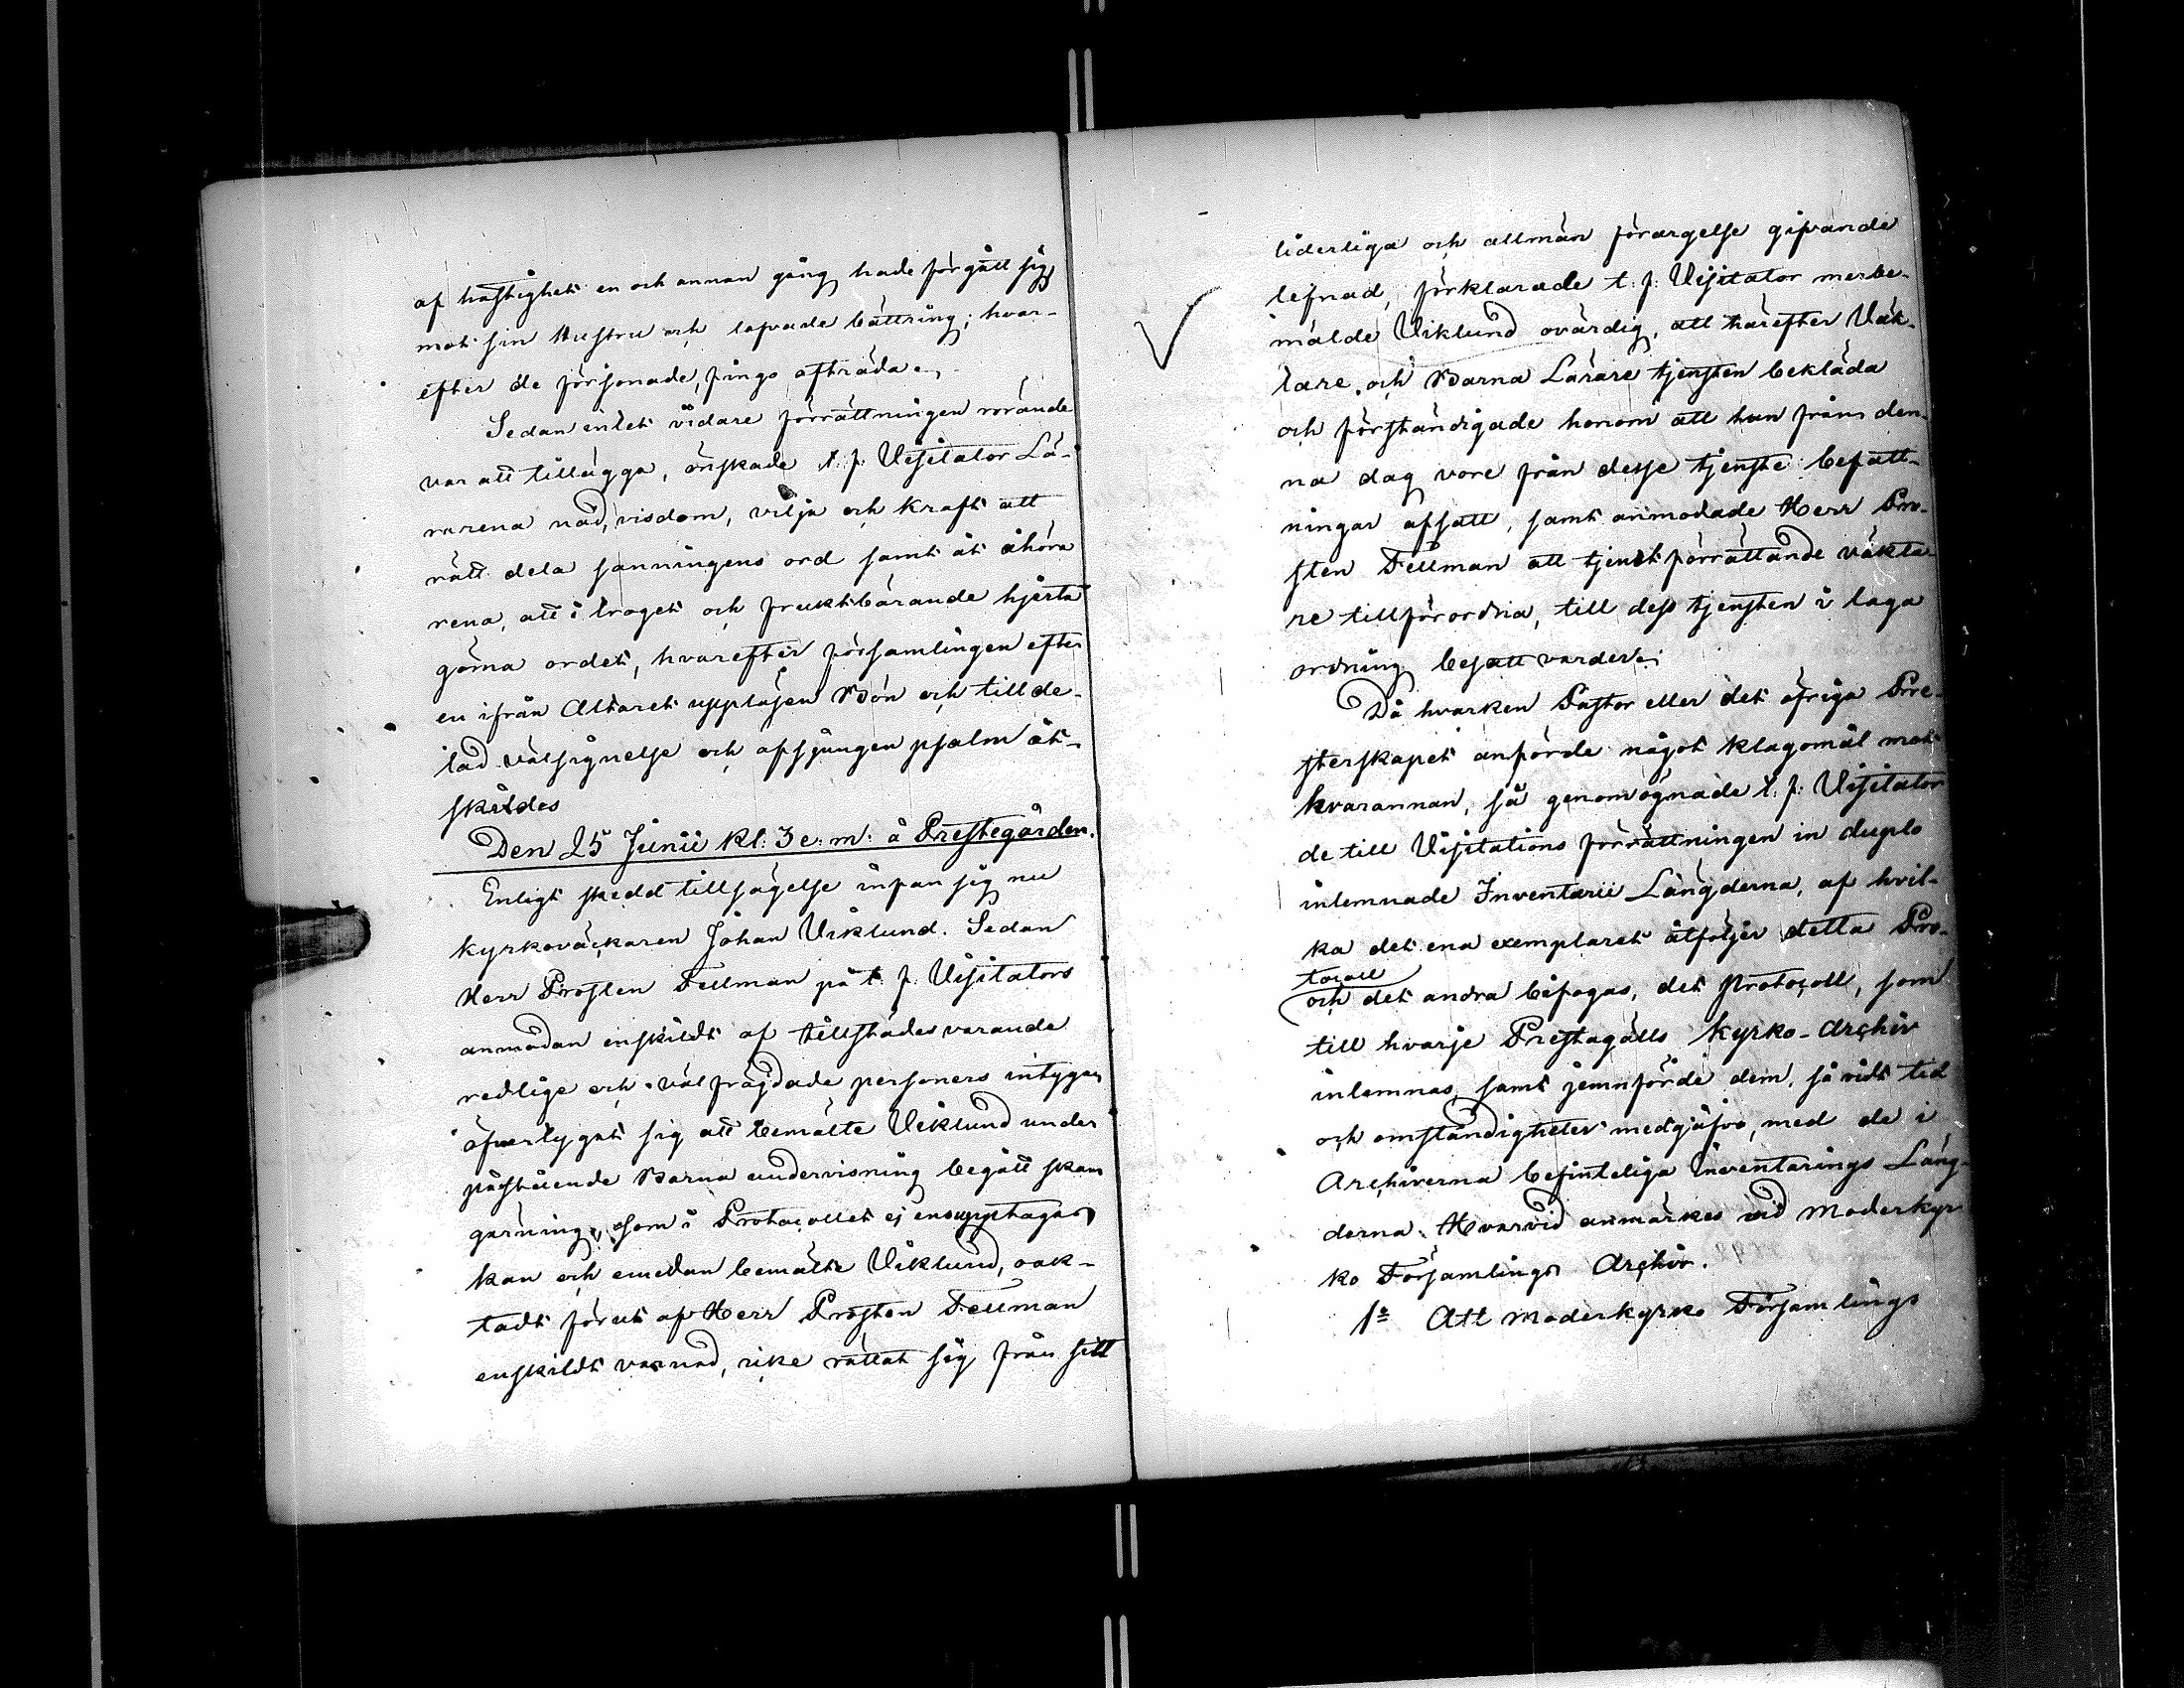 af häftighet en och annan gång hade förgått sig
mot sin Hustru och lofvade bättring; hvar-
efter de försonade, fingo afträda.
Sedan intet vidare förrättningen rörande
var att tillägga, önskade t. f. Visitator Lä-
rarena nåd, visdom, vilja och kraft att
rätt dela sanningens ord samt åt åhöra
rena, att i troget och fruktbärande hjerta
göma ordet, hvarefter församlingen efter
en ifrån Altaret uppläsen Bön och tillde-
lad välsignelse och afsjungen psalm åt-
skildes
Den 25 Junii kl: 3 e: m: å Prestegården.
Enligt skedd tillsägelse infan sig nu
kyrkoväckaren Johan Viklund. Sedan
Herr Prosten Fellman på t. f. Visitators
anmodan enskildt af tillstädesvarande
redlige och välfräjdade personers intygan
öfvertygat sig att bemälte Viklund under
påstående Barna undervisning begått skam
gärning, som i Protocollet ej ens upptagas
kan och emedan bemälte Viklund, oak-
tadt förut af Herr Prosten Fellman
enskildt varnad, icke rättat sig från sitt
liderliga och allmän förargelse gifvande
lefnad, förklarade t. f. Visitator merbe-
mälde Viklund ovärdig, att härefter Väk-
tare och Barna Lärare tjensten bekläda
och förständigade honom att han från den-
na dag vore från desse tjenste befatt-
ningar afsatt, samt anmodade Herr Pro-
sten Fellman att tjenstförrättande väkta-
re tillförordna, till dess tjensten i laga
ordning besatt varder.
Då hvarken Pastor eller det öfriga Pre-
sterskapet anförde något klagomål mot
hvarannan, så genomögnade t. f. Visitator
de till Visitations förrättningen in duplo
inlemnade Inventarii Längderna, af hvil-
ka det ena exemplaret åtföljer detta Pro-
tocoll
och det andra bifogas, det Protocoll, som
till hvarje Prestagälls Kyrko-Archiv
inlemnas, samt jemnförde dem, så vidt tid
och omständigheter medgåfvo, med de i
Archiverna befinteliga Inventarings Läng-
derna. Hvarvid anmärkes vid Moderkyr
ko Församlings Archiv.
1o Att Moderkyrko Församlings